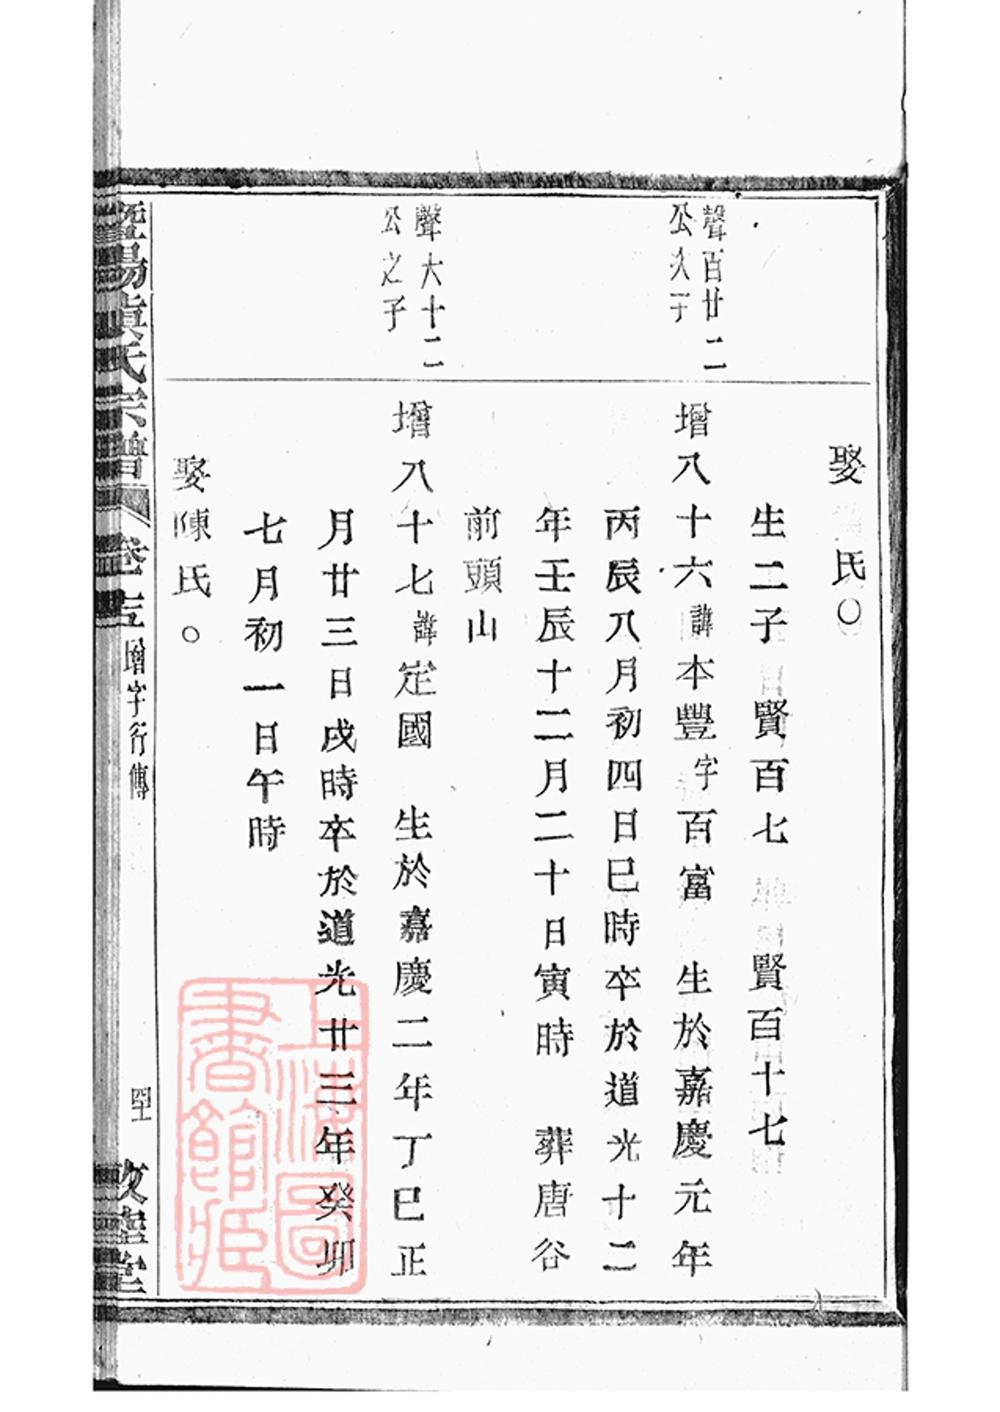 娶 氏○
生二子 賢百七 賢百十七
聲百廿二
公次子
增八十六諱本豐字百富 生於嘉慶元年
丙辰八月初四日巳時卒於道光十二
年壬辰十二月二十日寅時 葬唐谷
前頭山
聲大十二
公之子
增八十七諱定國 生於嘉慶二年丁巳正
月廿三日戌時卒於道光廿三年癸卯
七月初一日午時
娶陳氏○
暨陽 氏宗譜 卷 增字行傳
堂
上海圖
書館藏